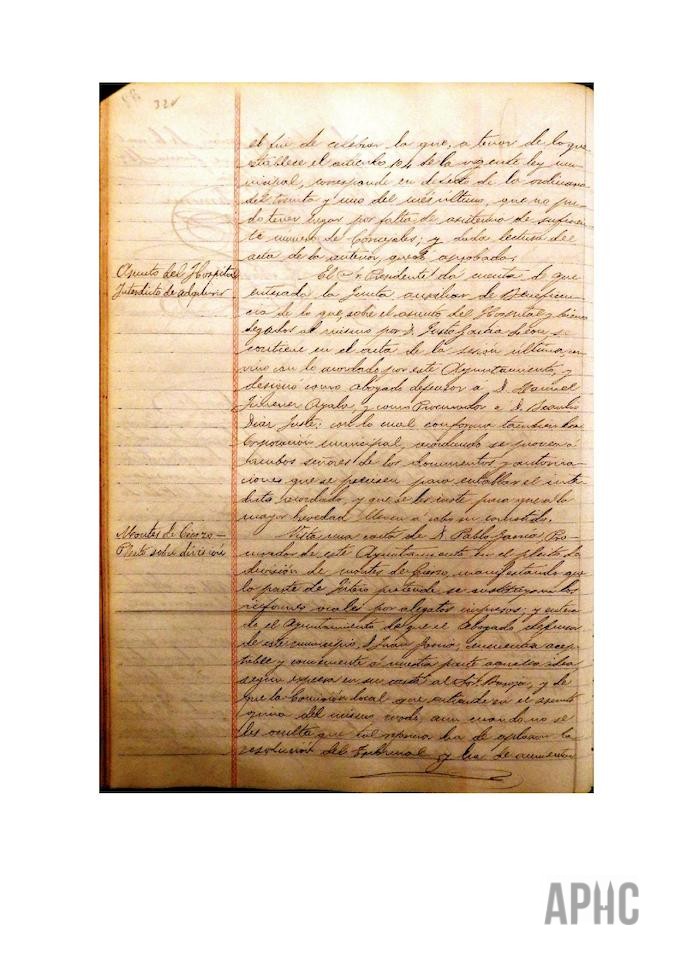 32v
el fin de celebrar la que, a tenor de lo que
establece el artículo 104 de la vigente ley mu-
nicipal, corresponde en defecto de la ordinaria
del treinta y uno del mes último, que no pu-
do tener lugar por falta de asistencia de suficien-
te número de Concejales; y dada lectura del
acta de la anterior, queda aprobada.
Asunto del Hospital
Interdicto de adquirir
El Sr. Presidente da cuenta de que
enterada la Junta auxiliar de Beneficen-
cia de lo que, sobre el asunto del Hospital y bienes
legados al mismo por D. Justo
contiene en el acta de la sesión última, con
vino con lo acordado por este Ayuntamiento, y
designó como abogado defensor a D. Manuel
Jiménez Ayala, y como Procurador a D.
Díaz Juste; con lo cual conforma también la
Corporación municipal, acordando se provea á
ambos señores de los documentos y autoriza-
ciones que se precisen para entablar el inter-
dicto acordado, y que se les invite para que a la
mayor brevedad lleven a cabo su cometido.
Montes de Cierzo —
Pleito sobre división
Vista una carta de D. Pablo Jaime Pro-
curador de este Ayuntamiento en el pleito de
división de montes de Cierzo, manifestando que
la parte de Fitero pretende se sustituyan los
informes orales por alegatos impresos; y entera-
do el Ayuntamiento de que el Abogado defensor
de este municipio, D. Juan encuentra acep-
table y conveniente a nuestra parte aquella idea
según expresa en su carta al Sr. y de
que la Comisión local que entiende en el asunto
opina del mismo modo, aun cuando no se
les oculta que tal reforma ha de aplazar la
resolución del Tribunal y ha de aumentar
APHC